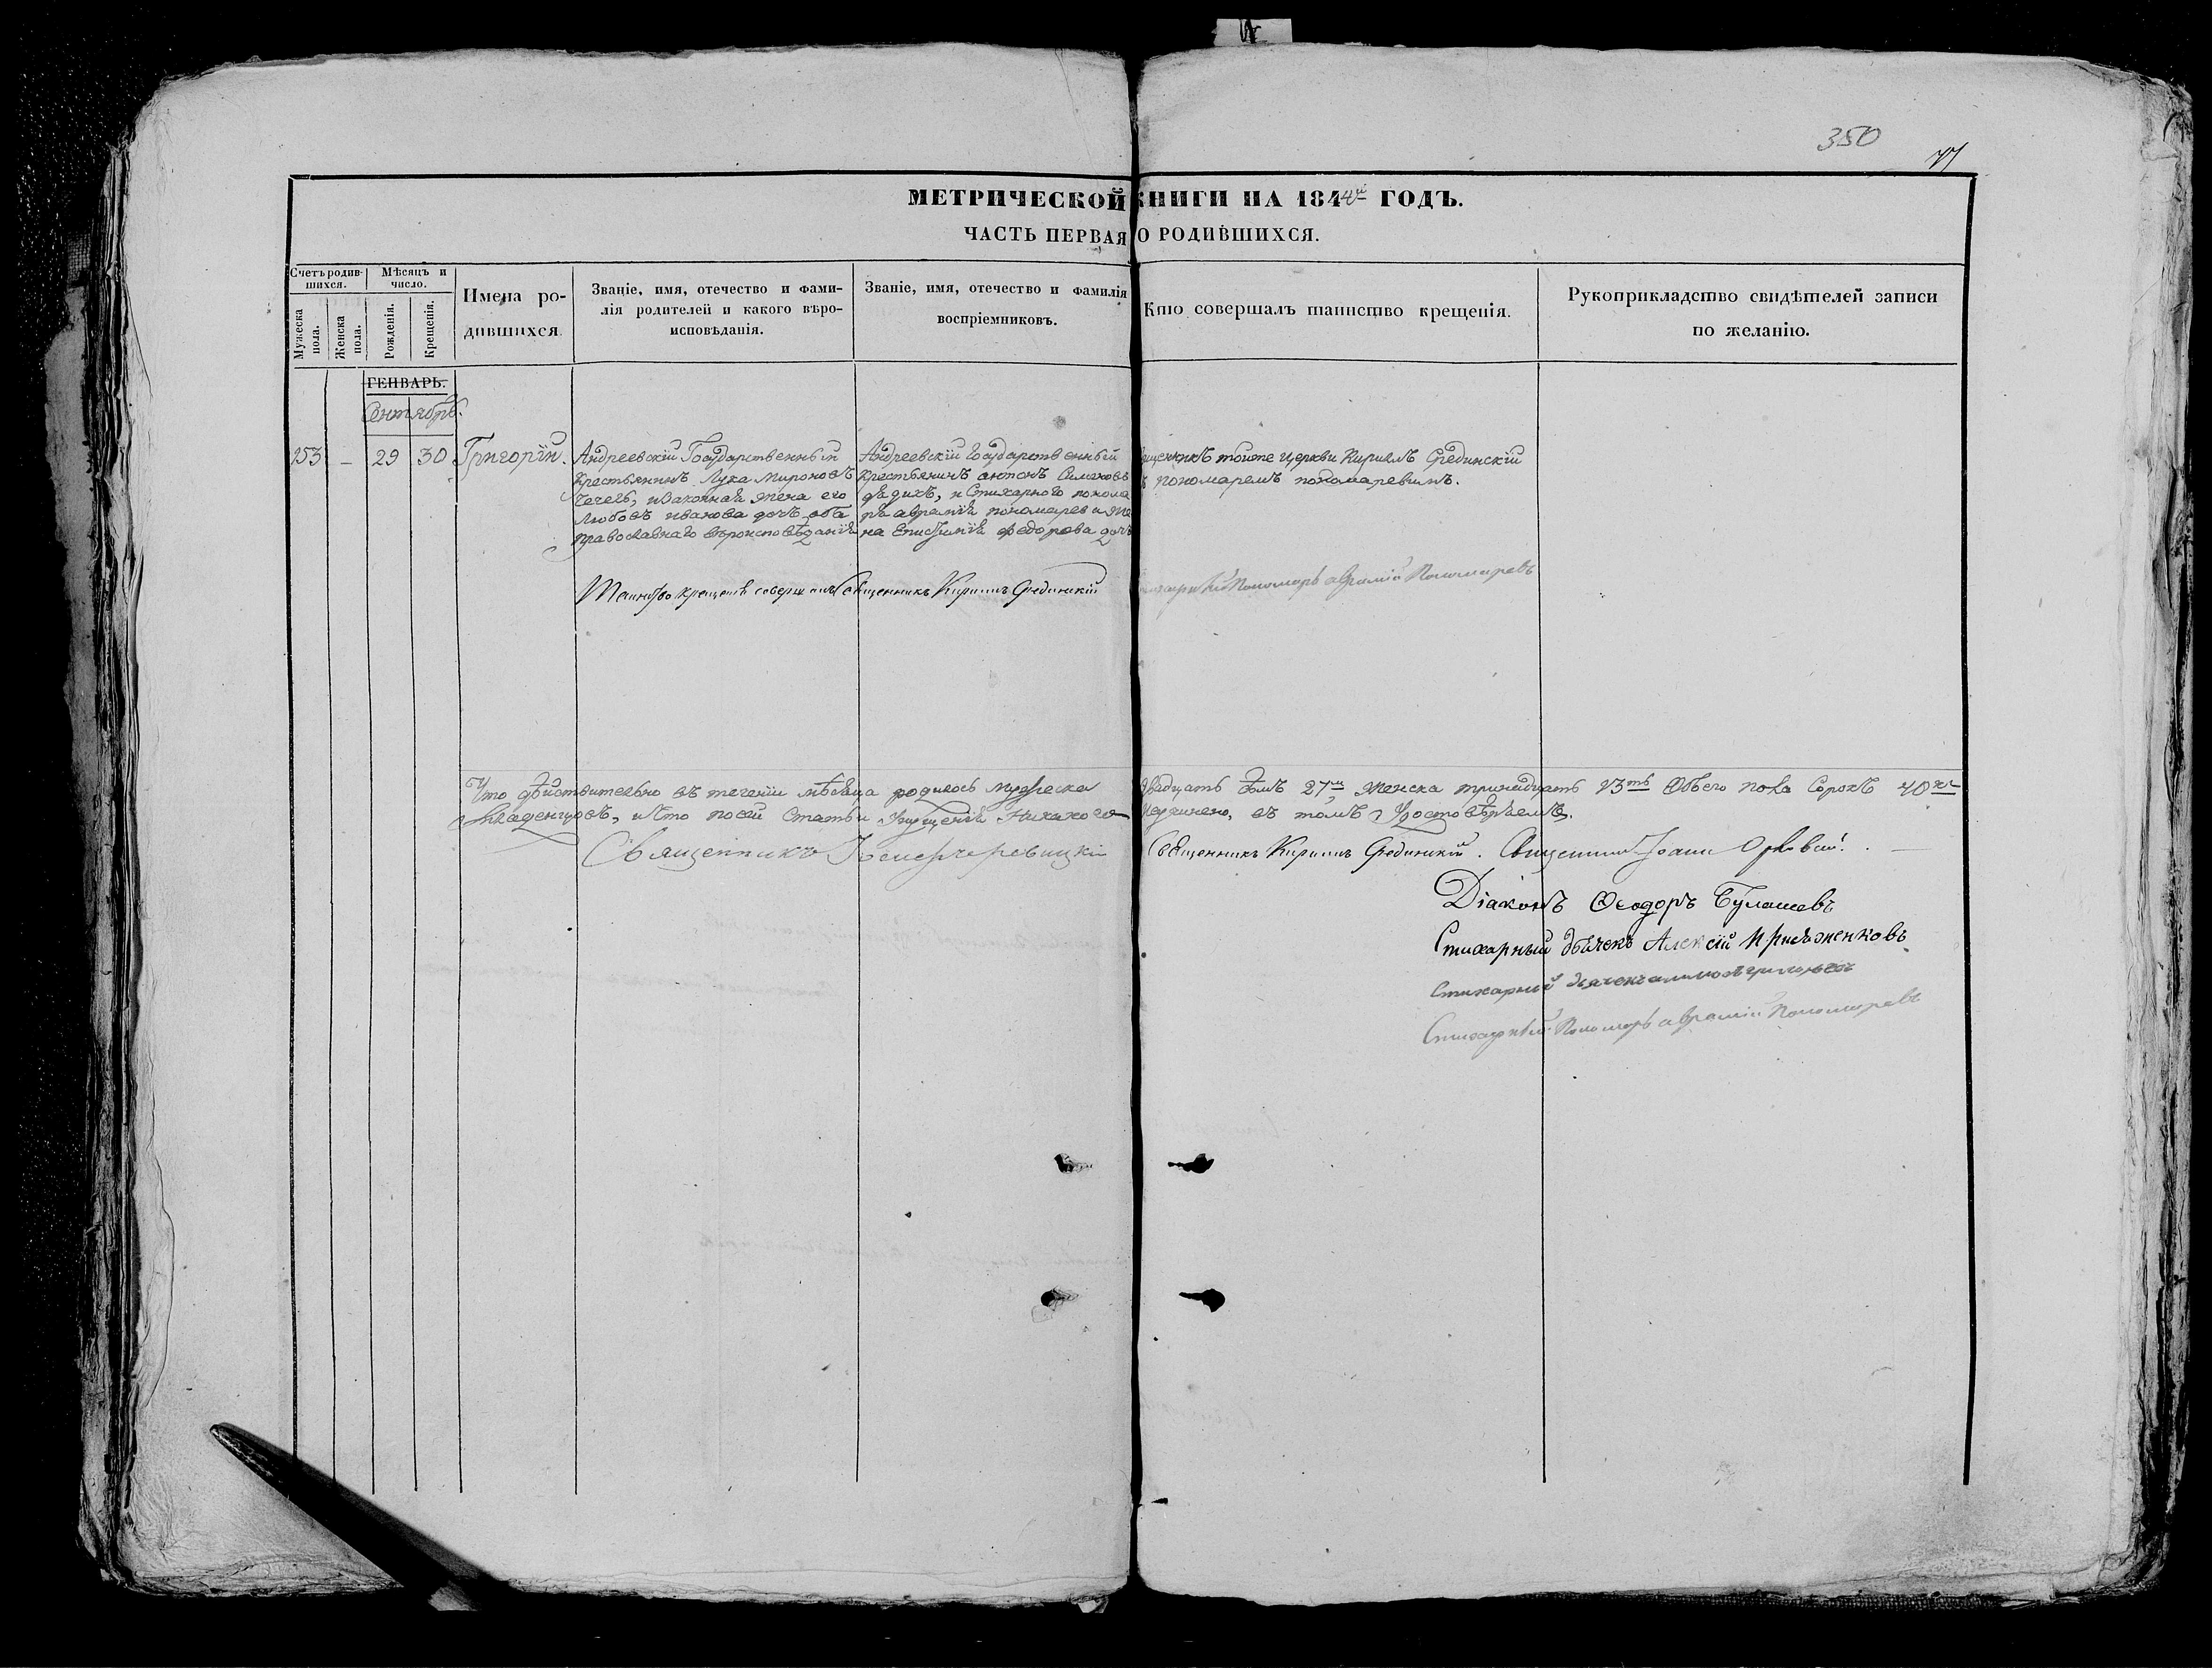 350
МЕТРИЧЕСКОЙ КНИГИ НА 1844й ГОДЪ.
ЧАСТЬ ПЕРВАЯ О РОДИВШИХСЯ.
Счетъ родив-
шихся.
Мужеска пола.
Женска пола.
Мѣсяцъ и
число.
Рожденія.
Крещенія.
Имена ро-
дившихся.
Званіе, имя, отечество и фами-
лія родителей и какого вѣро-
исповѣданія.
Званіе, имя, отечество и фамилія
воспріемниковъ.
Кто совершалъ таинство крещенія.
Рукоприкладство свидѣтелей записи
по желанію.
ГЕНВАРЬ.
Сентябрь.
153 - 29 30 Григорій.
Андреевскій Государственный
крестьянинъ Лука Мироновъ
и законная жена его
Любовь иванова дочь оба
православнаго вѣроисповѣданія
Андреевскій Государственный
крестьянинъ антонъ
и Стихарного понома
ря аврамія пономарева же
на Епистимія Федорова дочь
священникъ тойже церкви Кирилъ Срединскій
пономаремъ пономаревимъ.
Таинство крещенія совершалъ Священникъ Кирилъ Срединскій
Пономарь аврамій Пономаревъ
Что дѣйствительно въ теченіи мѣсяца родилось мужеска двадцать 27м женска тринадцать 13ть Обоего пола Сорокъ 40къ
младенцовъ, и что по сей Статьи Упущенія Никакого неучинено, въ томъ Удостовѣряемъ.
Священникъ
Священникъ Кирилъ Срединскій. Священникъ Іоаннъ
Діаконъ Ѳеодоръ Булашевъ
Стихарный дьячекъ Алексій
Стихарный дьячекъ
Стихарный Пономарь аврамій Пономаревъ